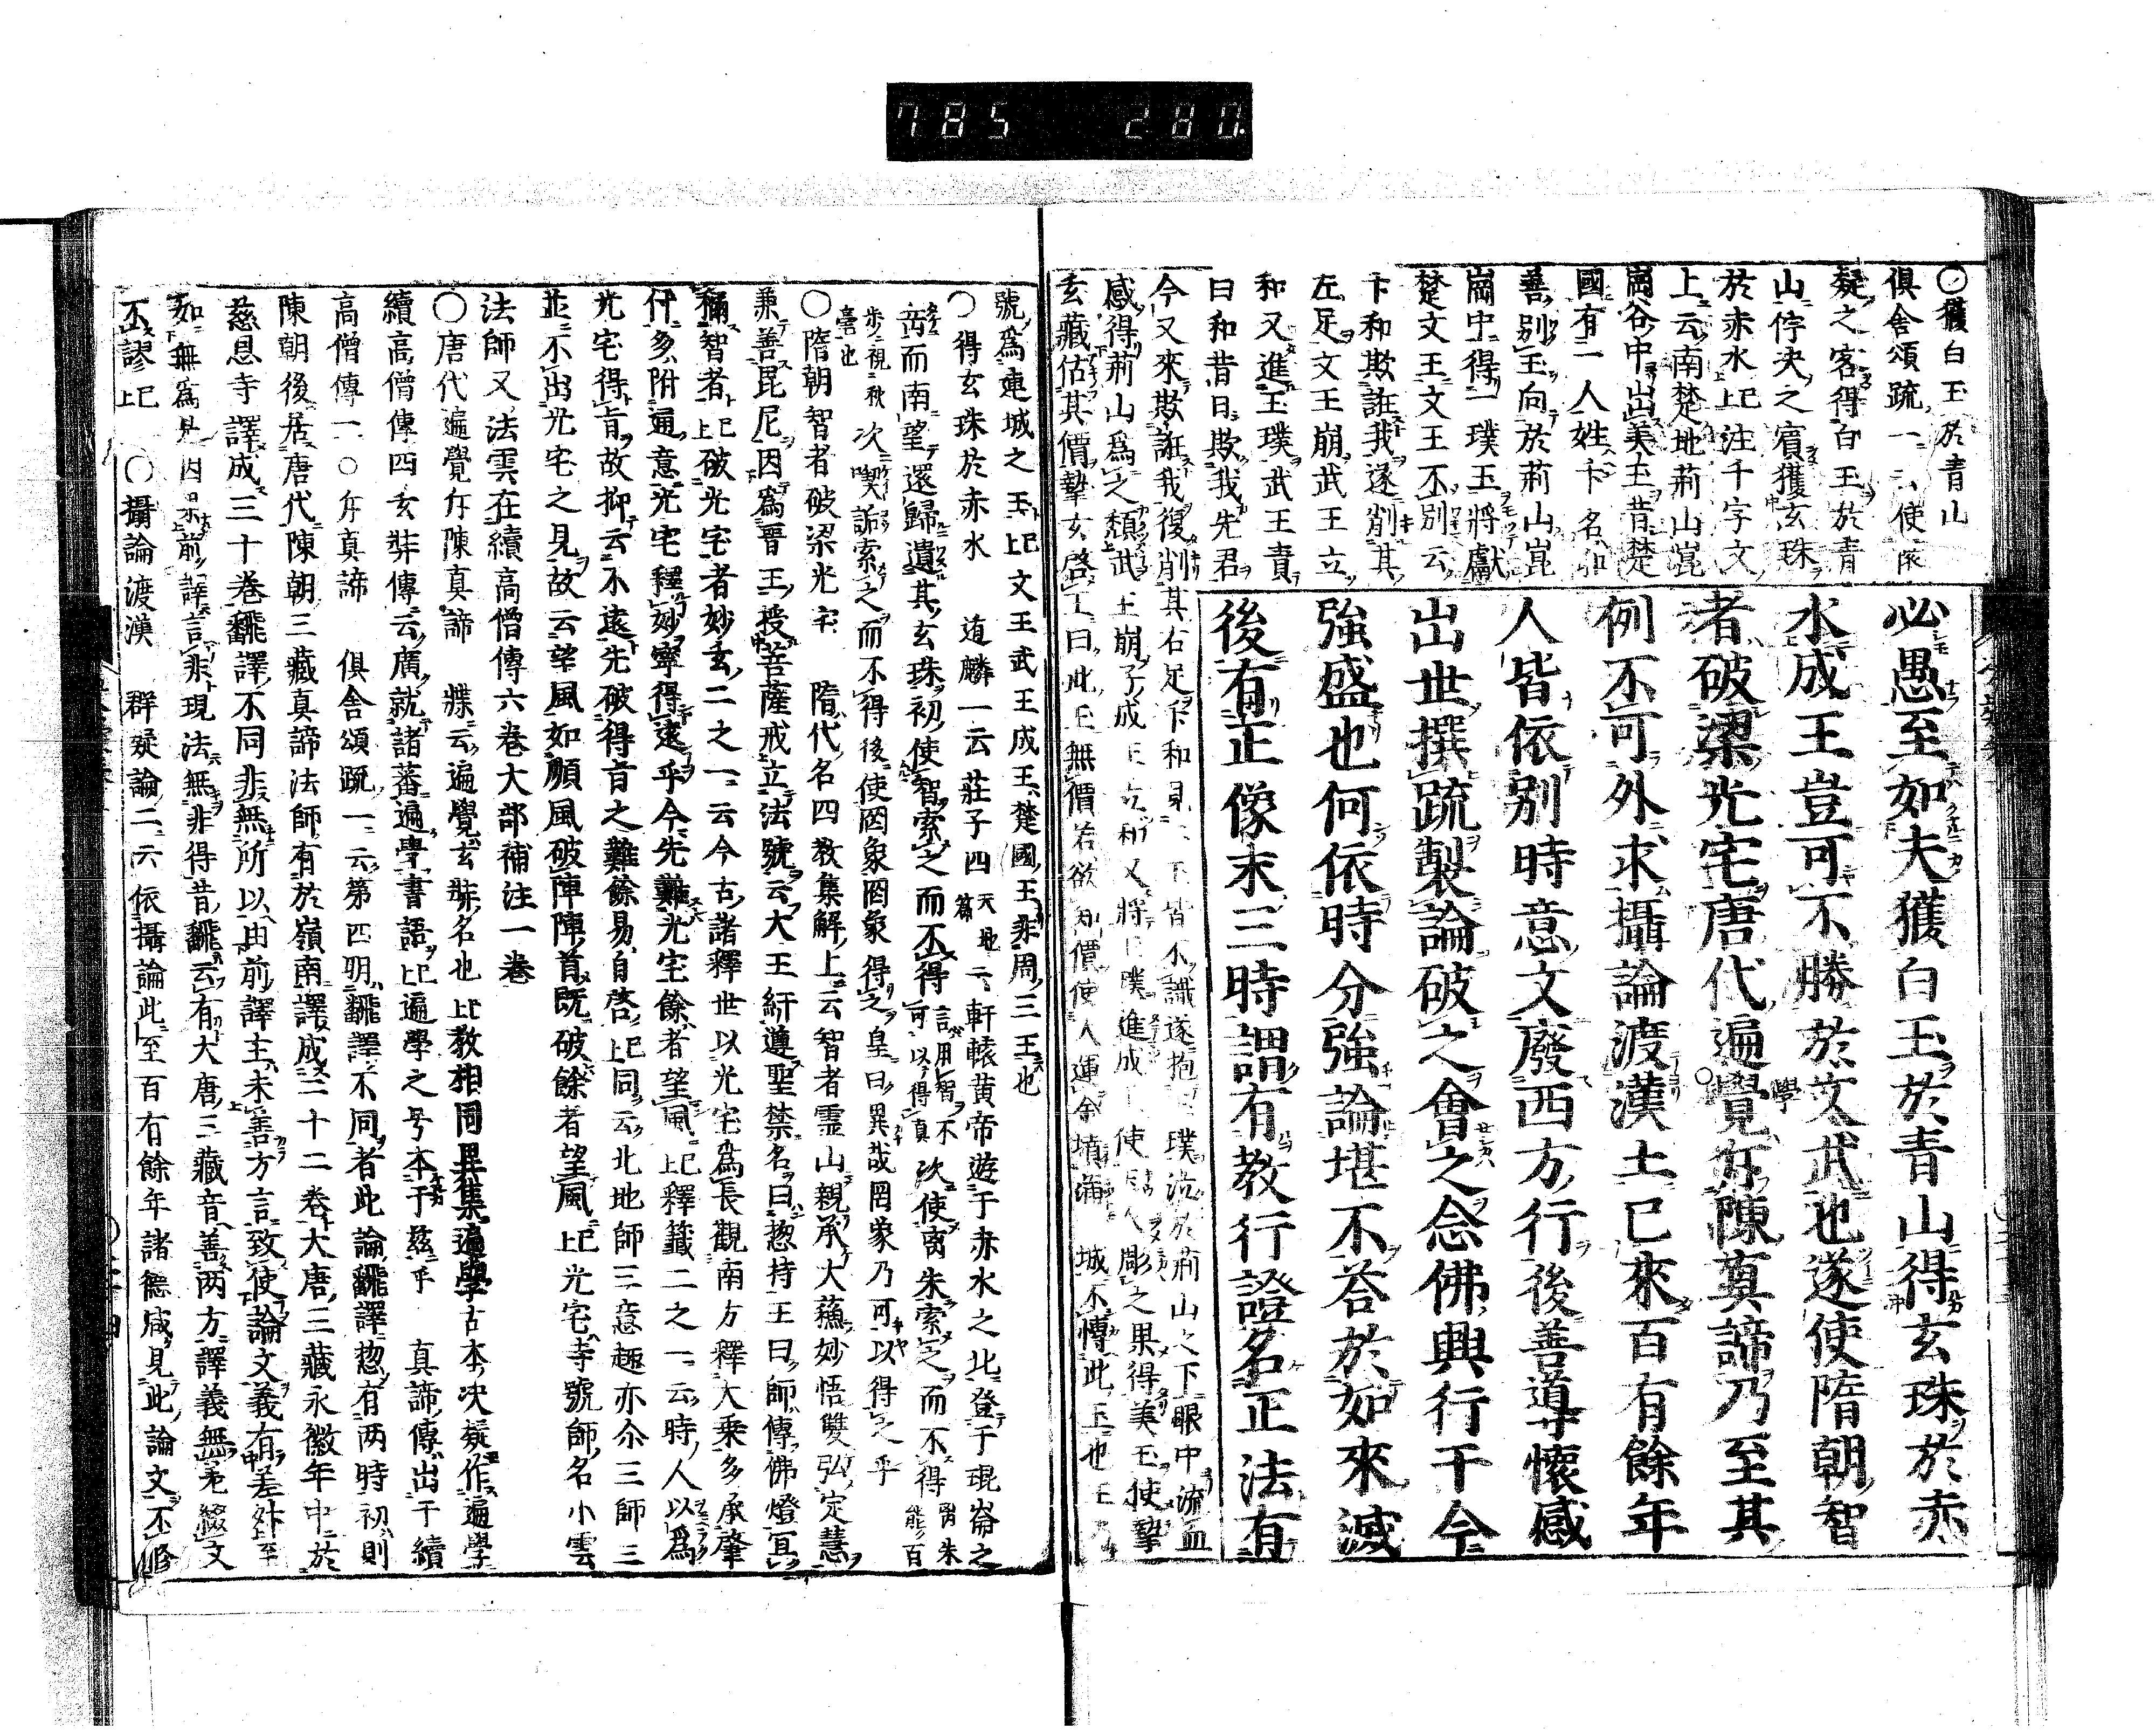 785 280
○獲白玉於青山
俱舍頌疏一云使依
疑之客得白玉於青
山俜決之賓獲玄珠
於赤水上已注千字文
上云南楚地荊山崑
崗谷中出美玉昔楚
國有一人姓卞名和
善別玉向於荊山崑
崗中得一璞玉將獻
楚文王文王不別云
卞和欺誑我遂削其
左足文王崩武王立
和又進玉璞武王責
曰和昔日欺我先君
今又來欺誑我復削其右足卞和見 下皆不識遂抱 璞泣於荊山之下眼中流血
感得荊山爲之頹武王崩子成王立和又將 璞進成 使 人彫之果得美玉使摯
玄藏估其價摯玄啓王曰此玉無價若欲知價使人運金填滿 城不博此玉也王
必愚至如夫獲白玉於青山得玄珠於赤
水成王豈可不勝於文武也遂使隋朝智
者破梁光宅唐代遍學覺斥陳真諦乃至其
例不可外求攝論渡漢土已來百有餘年
人皆依別時意文廢西方行後善導懷感
出世撰疏製論破之會之念佛興行于今
強盛也何依時分強論堪不答於如來滅
後有正像末三時謂有教行證名正法有
號爲連城之玉上已文王武王成王楚國王非周三王也
○得玄珠於赤水 遁麟一云莊子四天地篇云軒轅黃帝遊于赤水之北登于琨崙之
岳而南望還歸遺其玄珠初使智索之而不得言用智不可以得真次使离朱索之而不得离朱能百
步視秋毫也次喫詬索之而不得後使罔象罔象得之皇曰異哉罔象乃可以得之乎
○隋朝智者破梁光宅 隋代名四教集解上云智者霊山親承大蘓妙悟雙弘定慧
兼善毘尼因爲晉王授菩薩戒立法號云大王紆遵聖禁名曰惣持王曰師傳佛燈宜
稱智者上已破光宅者妙玄二之一云今古諸釋世以光宅爲長觀南方釋大乗多承肇
什多附通意光宅釋妙寧得遠乎今先難光宅餘者望風上已釋籤二之一云時人以爲
光宅得旨故抑云不遠先破得旨之難餘易自啓上已同云北地師三意趣亦尒三師三
並不出光宅之見故云望風如順風破陣陣首既破餘者望風上已光宅寺號師名小雲
法師又法雲在續高僧傳六卷大部補注一卷
○唐代遍覺斥陳真諦 牒云遍覺玄奘名也上教相同異集遍學古本決疑作遍學
續高僧傳四玄奘傳云廣就諸蕃遍學書語上已遍學之号本于茲乎 真諦傳出于續
高僧傳一○斥真諦 俱舍頌疏一云第四明翻譯不同者此論翻譯惣有兩時初則
陳朝後居唐代陳朝三藏真諦法師有於嶺南譯成二十二卷大唐三藏永徽年中於
慈恩寺譯成三十卷翻譯不同非無所以由前譯主未善方言致使論文義有差舛至
如無爲是因果前譯言非現法無非得昔翻云有大唐三藏音善兩方譯義無虧綴文
不謬上已 ○攝論渡漢 群疑論二云依攝論此至百有餘年諸德咸見此論文不修